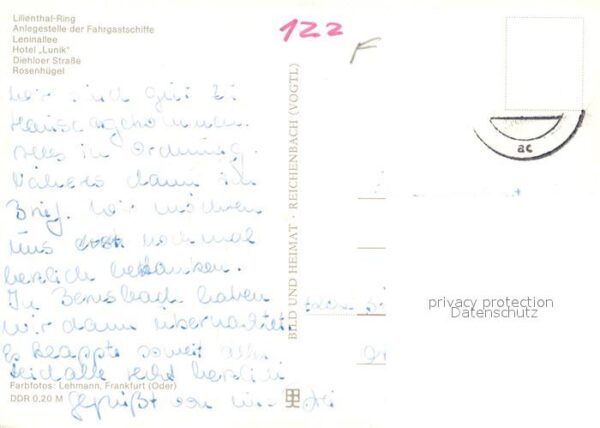 Lilienthal-Ring
Anlegestelle der Fahrgastschiffe
Leninallee
Hotel „Lunik"
Diehloer Straße
Rosenhügel
122
F
wir sind gut zu
Hause angekommen.
Alles in Ordnung.
Näheres dann im
Brief. Wir möchten
uns noch mal
herzlich bedanken.
In Bernsbach haben
wir dann übernachtet
Es klappte soweit alles
Seid alle recht herzlich
gegrüßt von
Farbfotos: Lehmann, Frankfurt (Oder)
DDR 0,20 M
BILD UND HEIMAT · REICHENBACH (VOGTL)
ac
privacy protection
Datenschutz